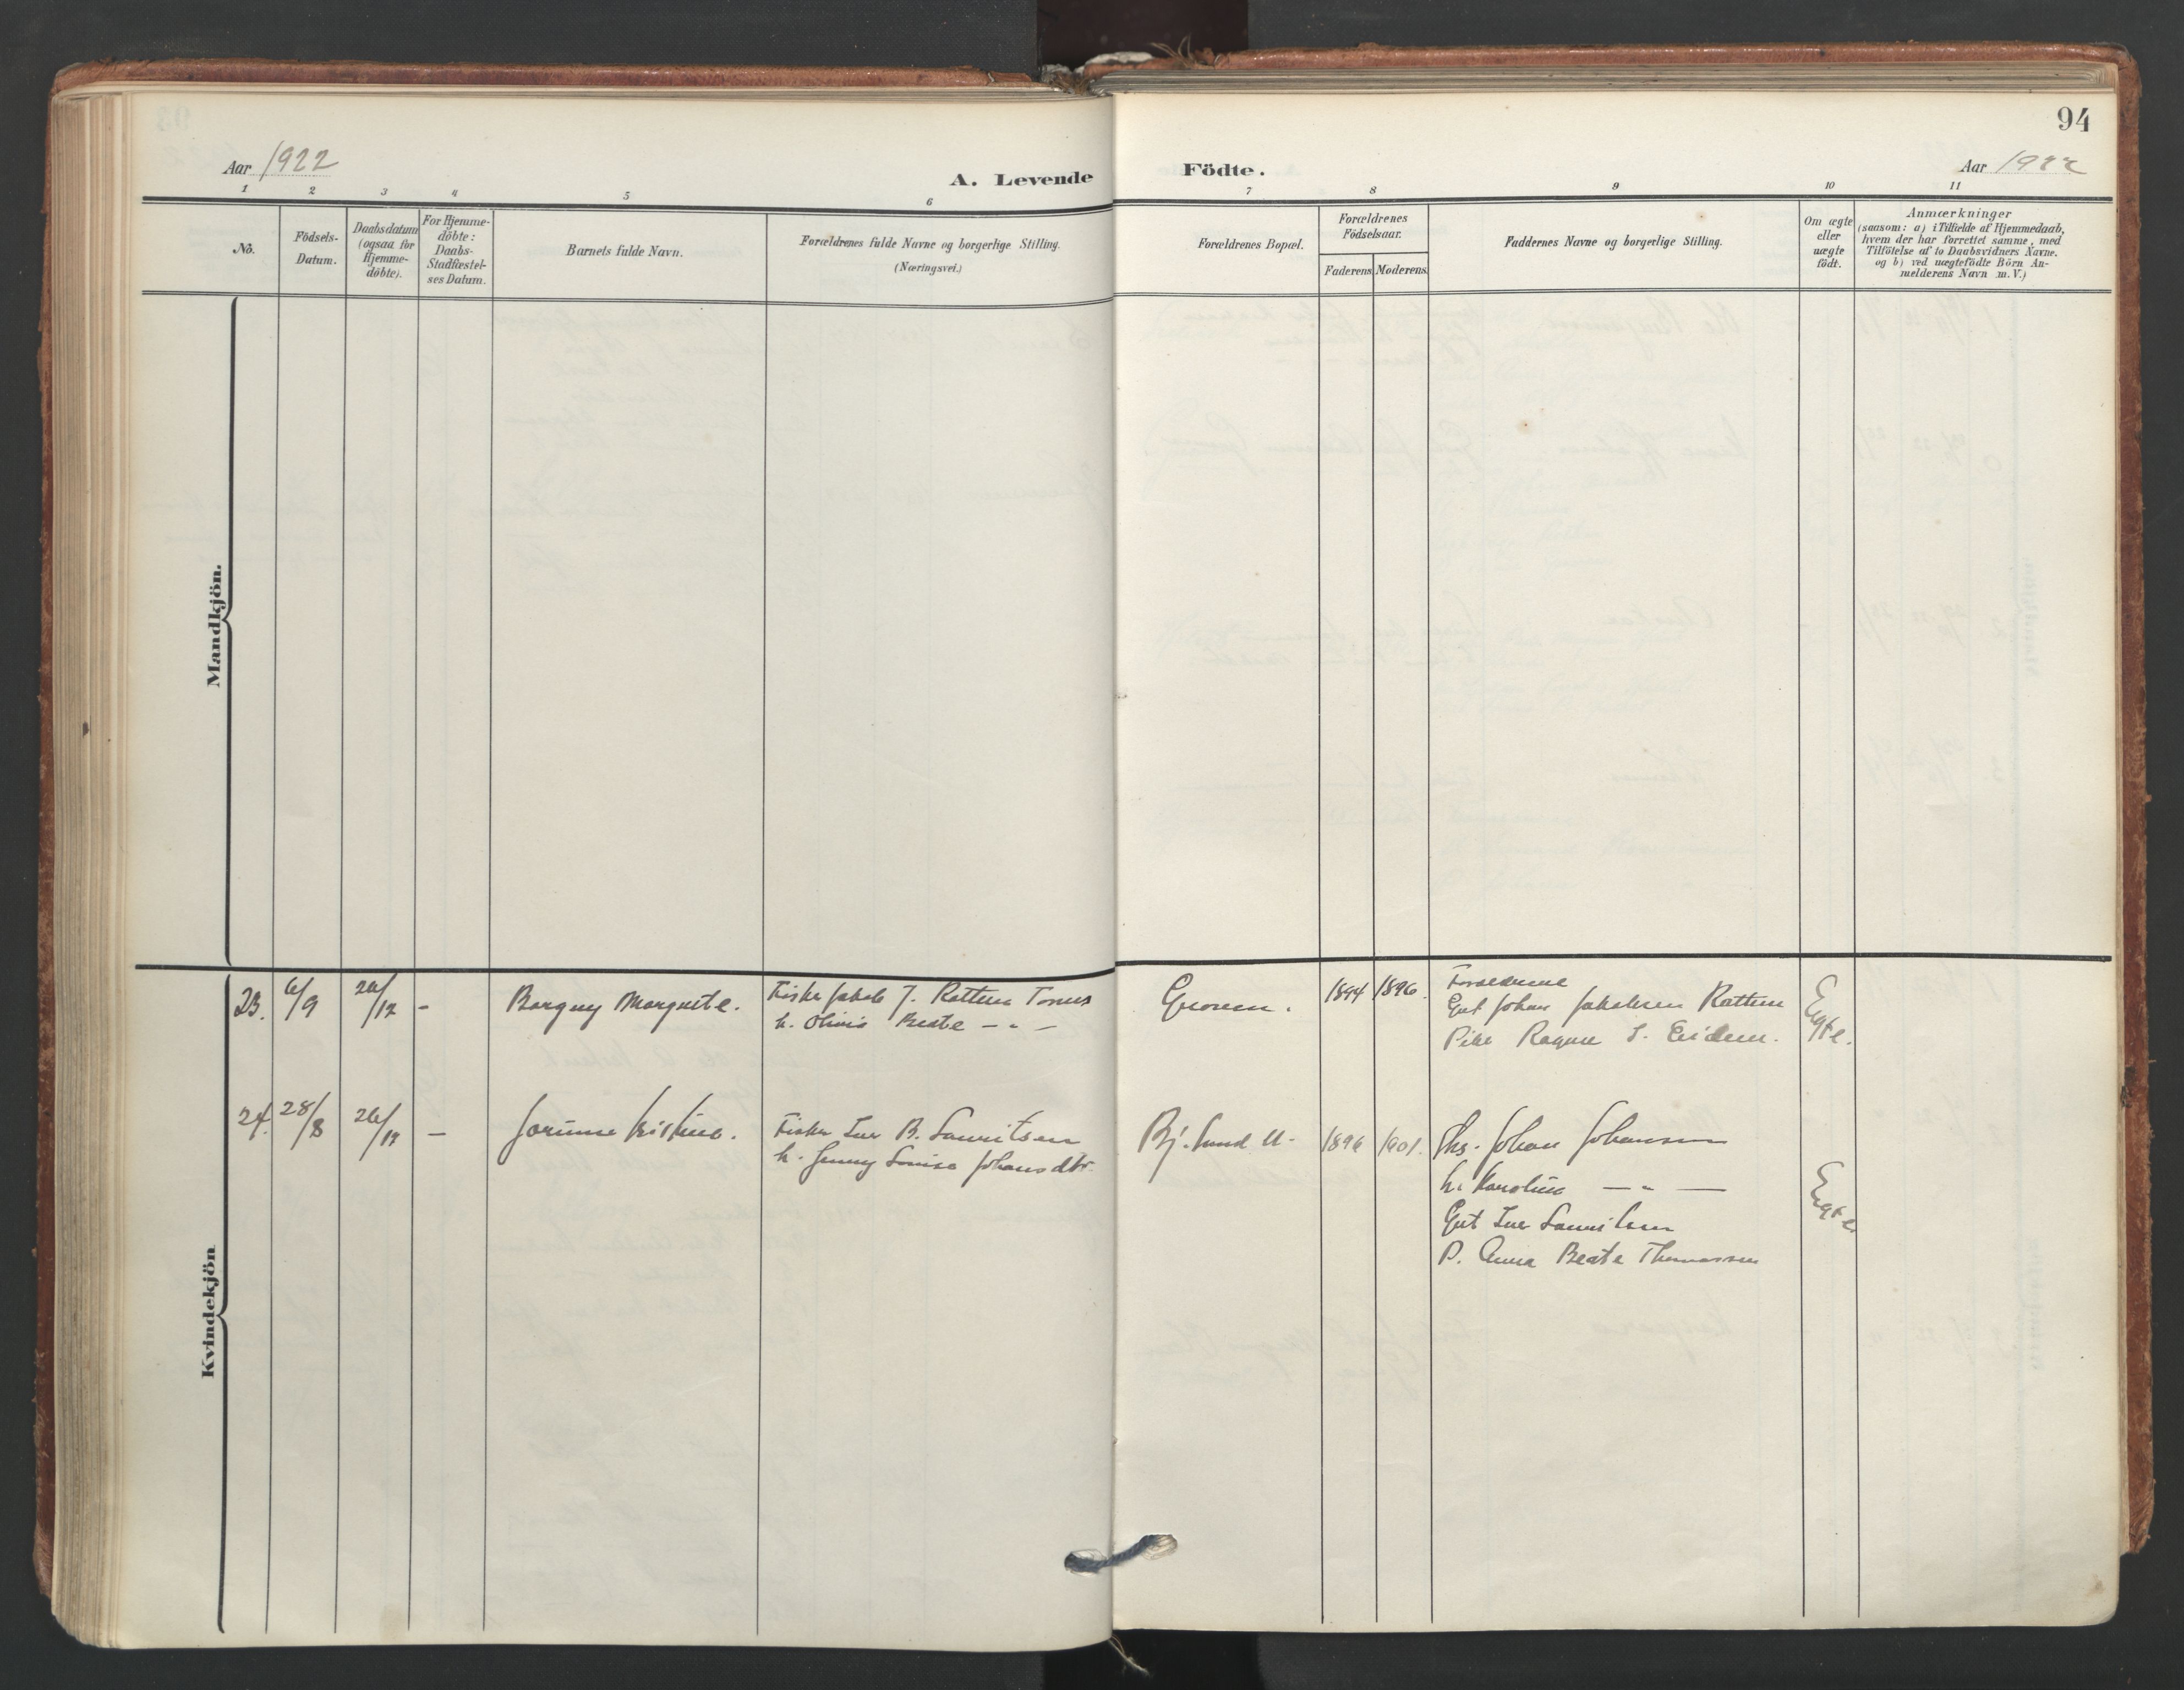 94
Aar 1922
A. Levende Födte.
Aar 1922
1 2 3 4 5 6 7 8 9 10 11
No.
Födsels-Datum.
Daabsdatum (ogsaa for Hjemme-döbte).
For Hjemme-döbte: Daabs-Stadfæstel-ses Datum.
Barnets fulde Navn.
Forældrenes fulde Navne og borgerlige Stilling.
(Næringsvei.)
Forældrenes Bopæl.
Forældrenes Födselsaar.
Faderens Moderens.
Faddernes Navne og borgerlige Stilling.
Om ægte eller uægte födt.
Anmærkninger
(saasom: a) i Tilfælde af Hjemmedaab,
hvem der har forrettet samme, med
Tilföielse af to Daabsvidners Navne.
og b) ved uægtefödte Börn An-
melderens Navn m.V.)
Mandkjön.
Kvindekjön
23. 6/9 26/12 - Borguy Margrete.
Fisker Jakob J. Tonus
h. Olivia Beate - " -
1894 1896.
Forældrene
Gut Johan Jakobsen
Pike Ragna J. Eidem.
Egte.
24. 28/8 26/12 - Jorunne Kristine.
Fisker Iver B. Lauritsen
h. Jenny Louise Johansdtr.
Bj. Sund
1896 1901.
Johan Johansen
h. Karoline - " -
Gut Iver Lauritsen
P. Anna Beate Thomassen
Egte.